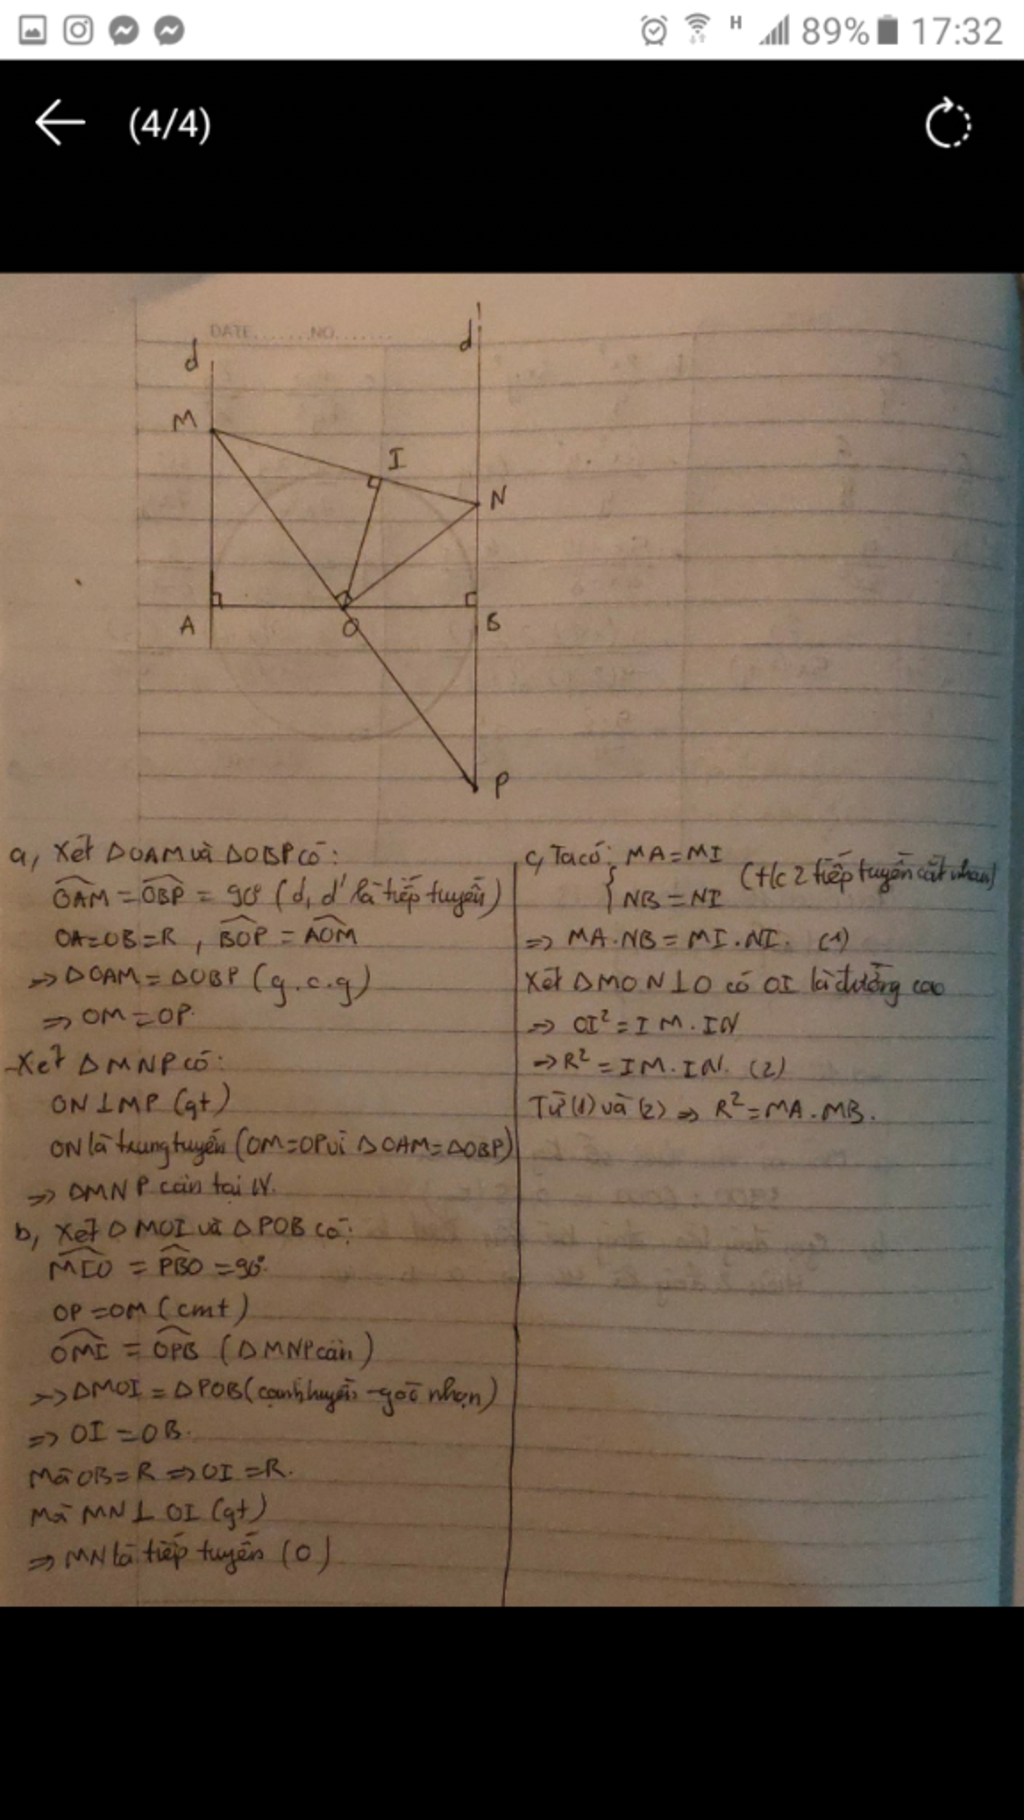 89% 17:32
(4/4)
DATE.......NO.......
d
d'
M
I
N
A
O
B
P
a, Xét ΔOAM và ΔOBP có:
OAM = OBP = 90° (d, d' là tiếp tuyến)
OA=OB=R, BOP = AOM
=> ΔOAM = ΔOBP (g.c.g)
=> OM = OP.
-Xét ΔMNP có:
ON⊥MP (gt)
ON là trung tuyến (OM=OP vì ΔOAM=ΔOBP)
=> ΔMNP cân tại N.
b, Xét ΔMOI và ΔPOB có:
MIO = PBO = 90°.
OP = OM (cmt)
OMI = OPB (ΔMNP cân)
=> ΔMOI = ΔPOB (cạnh huyền - góc nhọn)
=> OI = OB.
Mà OB = R => OI = R.
Mà MN⊥OI (gt)
=> MN là tiếp tuyến (O)
c, Ta có: { MA = MI
NB = NI (t/c 2 tiếp tuyến cắt nhau)
=> MA.NB = MI.NI. (1)
Xét ΔMON⊥O có OI là đường cao
=> OI² = IM.IN
=> R² = IM.IN. (2)
Từ (1) và (2) => R² = MA.MB.